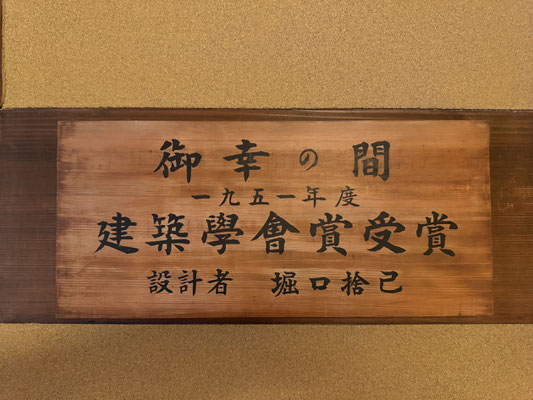 御幸の間
一九五一年度
建築學會賞受賞
設計者 堀口捨己